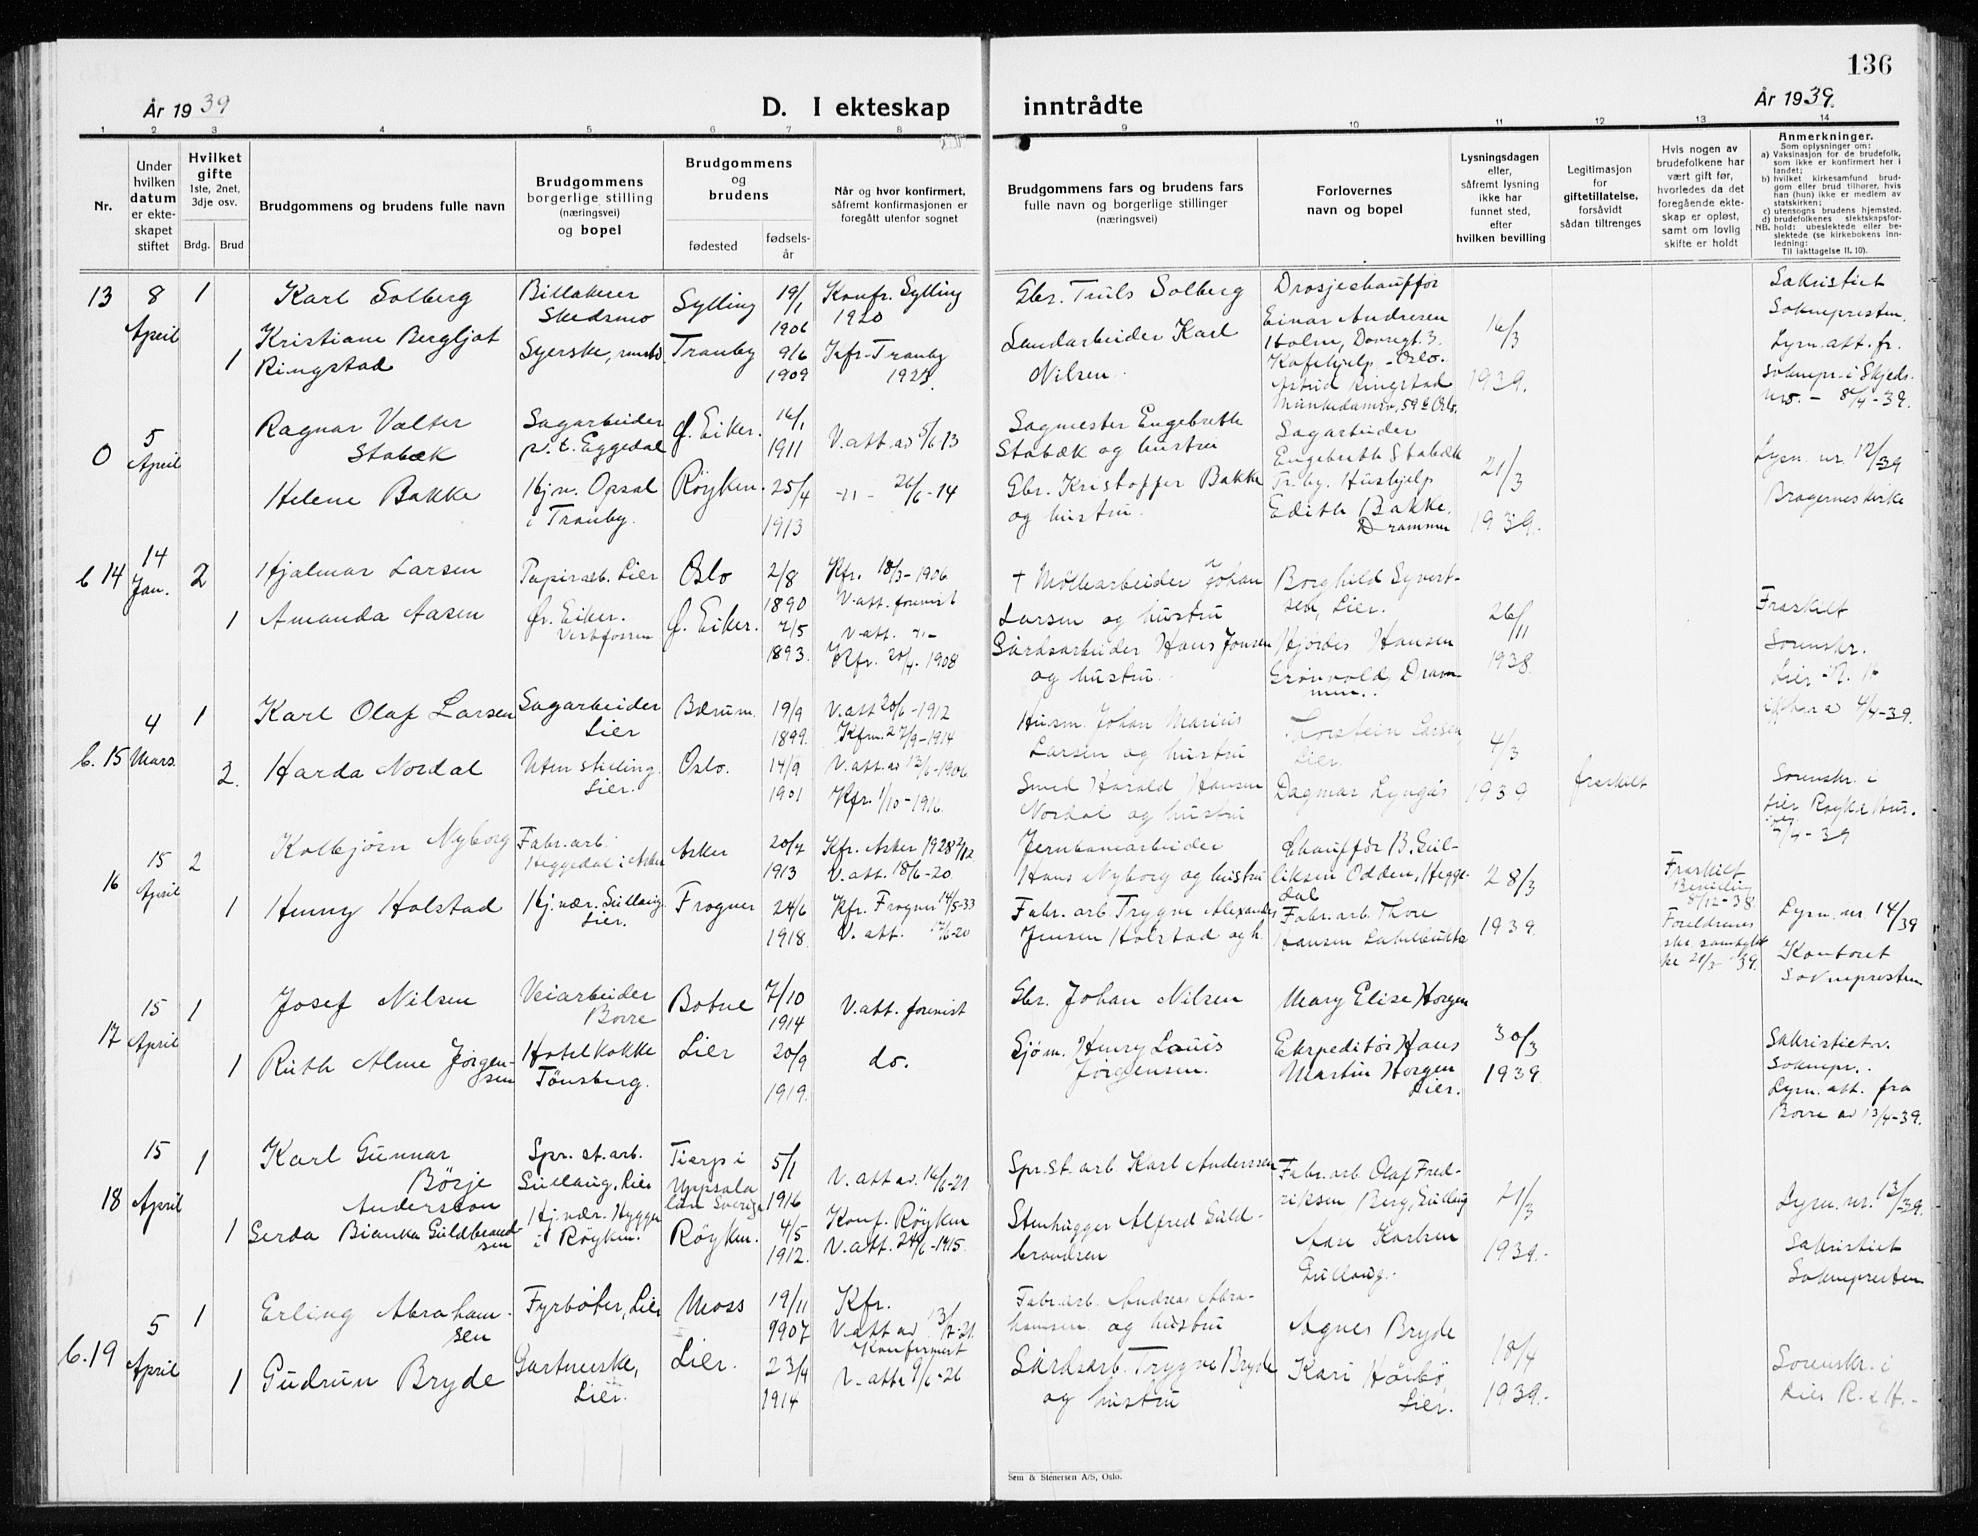 136
År 1939
D. I ekteskap inntrådte
År 1939.
1 2 3 4 5 6 7 8 9 10 11 12 13 14
Nr.
Under hvilken datum er ekteskapet stiftet
Hvilket gifte
1ste, 2net, 3dje osv.
Brdg. Brud
Brudgommens og brudens fulle navn
Brudgommens borgerlige stilling (næringsvei) og bopel
Brudgommens og brudens
fødested
fødselsår
Når og hvor konfirmert, såfremt konfirmasjonen er foregått utenfor sognet
Brudgommens fars og brudens fars fulle navn og borgerlige stillinger (næringsvei)
Forlovernes navn og bopel
Lysningsdagen eller, såfremt lysning ikke har funnet sted, efter hvilken bevilling
Legitimasjon for giftetillatelse, forsåvidt sådan tiltrenges
Hvis nogen av brudefolkene har vært gift før, hvorledes da det foregående ekteskap er opløst, samt om lovlig skifte er holdt
Anmerkninger.
Som oplysninger om:
a) Vaksinasjon for de brudefolk, som ikke er konfirmert her i landet;
b) hvilket kirkesamfund brudgom eller brud tilhører, hvis han (hun) ikke er medlem av statskirken;
c) utensogns brudens hjemsted.
d) brudefolkenes slektskapsforhold: ubeslektede eller beslektede (se kirkebokens innledning:
NB.
Til iakttagelse II. 10).
13 8 April 1
Karl Solberg
Billakerer Skedsmo
Sylling
19/1 1906
Konfr. Sylling 1920
Gbr. Truls Solberg
Drosjeshauffør Einar Andresen Holm, Dovregt. 3.
16/3 1939.
Sakristiet
Soknepresten.
Lysn. att. fr. soknepr. i Skjedsmo. - 8/4-39.
1
Kristiane Bergljot Ringstad
Syerske,
Tranby
9/6 1909
Kfr. Tranby 1923.
Landarbeider Karl Nilsen.
Kafehjelp - Oslo. Astrid Ringstad Munkedamsv. 59 b Oslo.
0 5 April
Ragnar Valter Stabæk
Sagarbeider p.t. Eggedal
Ø. Eiker.
1911
V. att. av 5/6-13
Sagmester Engebreth Stabæk og hustru
Sagarbeider Engebreth Stabæk Tr.by. Hushjelp
21/3 1939.
Lysn. nr. 12/39
Bragernes kirke
Helene Bakke
Hj. v. Opsal i Tranby.
Røyken.
25/4 1913
-"- 26/6-14
Gbr. Kristoffer Bakke og hustru.
Edith Bakke, Drammen
b 14 14 Jan. 2
Hjalmar Larsen
Papirarb. Lier
Oslo
2/8 1890
Kfr. 18/3-1906
V. att. forevist
† Møllearbeider Johan Larsen og hustru
Borghild Syvertsen, Lier.
26/11 1938
Fraskilt
Sorenskr.
1
Amanda Aasen
Øv. Eiker. Vestfossen
Ø. Eiker.
2/5 1893.
V. att. -"-
Kfr. 20/4. 1908
Gårdsarbeider Hans Jonsen og hustru.
Hjördis Hansen Grönvold, Drammen.
4/4-39.
b. 15 4 Mars 1
Karl Olaf Larsen
Sagarbeider Lier
Bærum.
19/9 1899.
V. att 20/6-1912
Kfrm. 27/9-1914
Husm. Johan Marius Larsen og hustru
Thorstein Larsen, Lier.
4/3 1939
fraskilt
2.
Harda Nordal
Uten stilling. Lier.
Oslo.
14/9 1901
V. att. av 12/6-1906
Kfr. 1/10-1916
Smed Harald Hansen Nordal og hustru
Dagmar Lyngås
Sorenskr. i Lier Røyk. & Hur.
4/4-39
16 15 April 2
Kolbjørn Nyborg
Fabr. arb. Heggedal i Asker
Asker
20/7 1913
Kfr. Asker 1928
V. att. 18/6-20.
Jernbanearbeider Hans Nyborg og hustru
Chauffør B. Gulliksen Odden, Heggedal
28/3 1939
Fraskilt Bevilling 5/12-38
Foreldrenes skr. samtykke 21/3 39.
Lysn. nr. 14/39
Kontoret
Soknepresten
1
Henny Holstad
Hj. vær. Gullaug. Lier.
Frogner
24/6 1918.
Kfr. Frogner 14/5-33
V. att. 17/6-20
Fabr. arb. Trygve Alexander Jensen Holstad og h.
Fabr. arb. Thore Hansen
17 15 April 1
Josef Nilsen
Veiarbeider Borre
Botne
7/10 1914
V. att. forevist
Gbr. Johan Nilsen
Mary Elise Horgen
30/3 1939.
Sakristiet v. soknepr.
Lysn. att. fra Borre av 13/4-39.
1
Ruth Alme Jørgensen
Hotelkokke Tönsberg.
Lier
20/9 1919.
do.
Sjøm. Henry Louis Jørgensen.
Ekspeditør Hans Martin Horgen Lier.
18 15 April 1
Karl Gunnar Börje Andersson
Spr. st. arb. Gullaug, Lier
Tierp i Uppsala län Sverige
5/1 1916
V. att av 16/6-21
Spr. st. arb. Karl Anderssen
Fabr. arb. Olaf Fredriksen Berg, Gullaug
21/3 1939.
Lysn. nr. 13/39.
Sakristiet
Soknepresten
1
Gerda Bianka Guldbrandsen
Hj. vær. Hyggen i Røyken.
Røyken.
4/5 1912.
Konf. Røyken
V. att. 24/6-1915.
Stenhugger Alfred Guldbrandsen
Aase Karlsen Gullaug.
b. 19 5 April 1
Erling Abrahamsen
Fyrbøter, Lier
Moss
19/11 1907
Kfr.
V. att av 13/7-21.
Fabr. arb. Andreas Abrahamsen og hustru
Agnes Bryde
18/4 1939.
Sorenskr. i Lier R. & H.
1
Gudrun Bryde
Gartnerske, Lier.
Lier.
23/4 1914
Konfirmert
V. att. 9/6-26
Gårdsarb. Trygve Bryde og hustru
Kari Hörbö, Lier.
Sem & Stenersen A/S, Oslo.